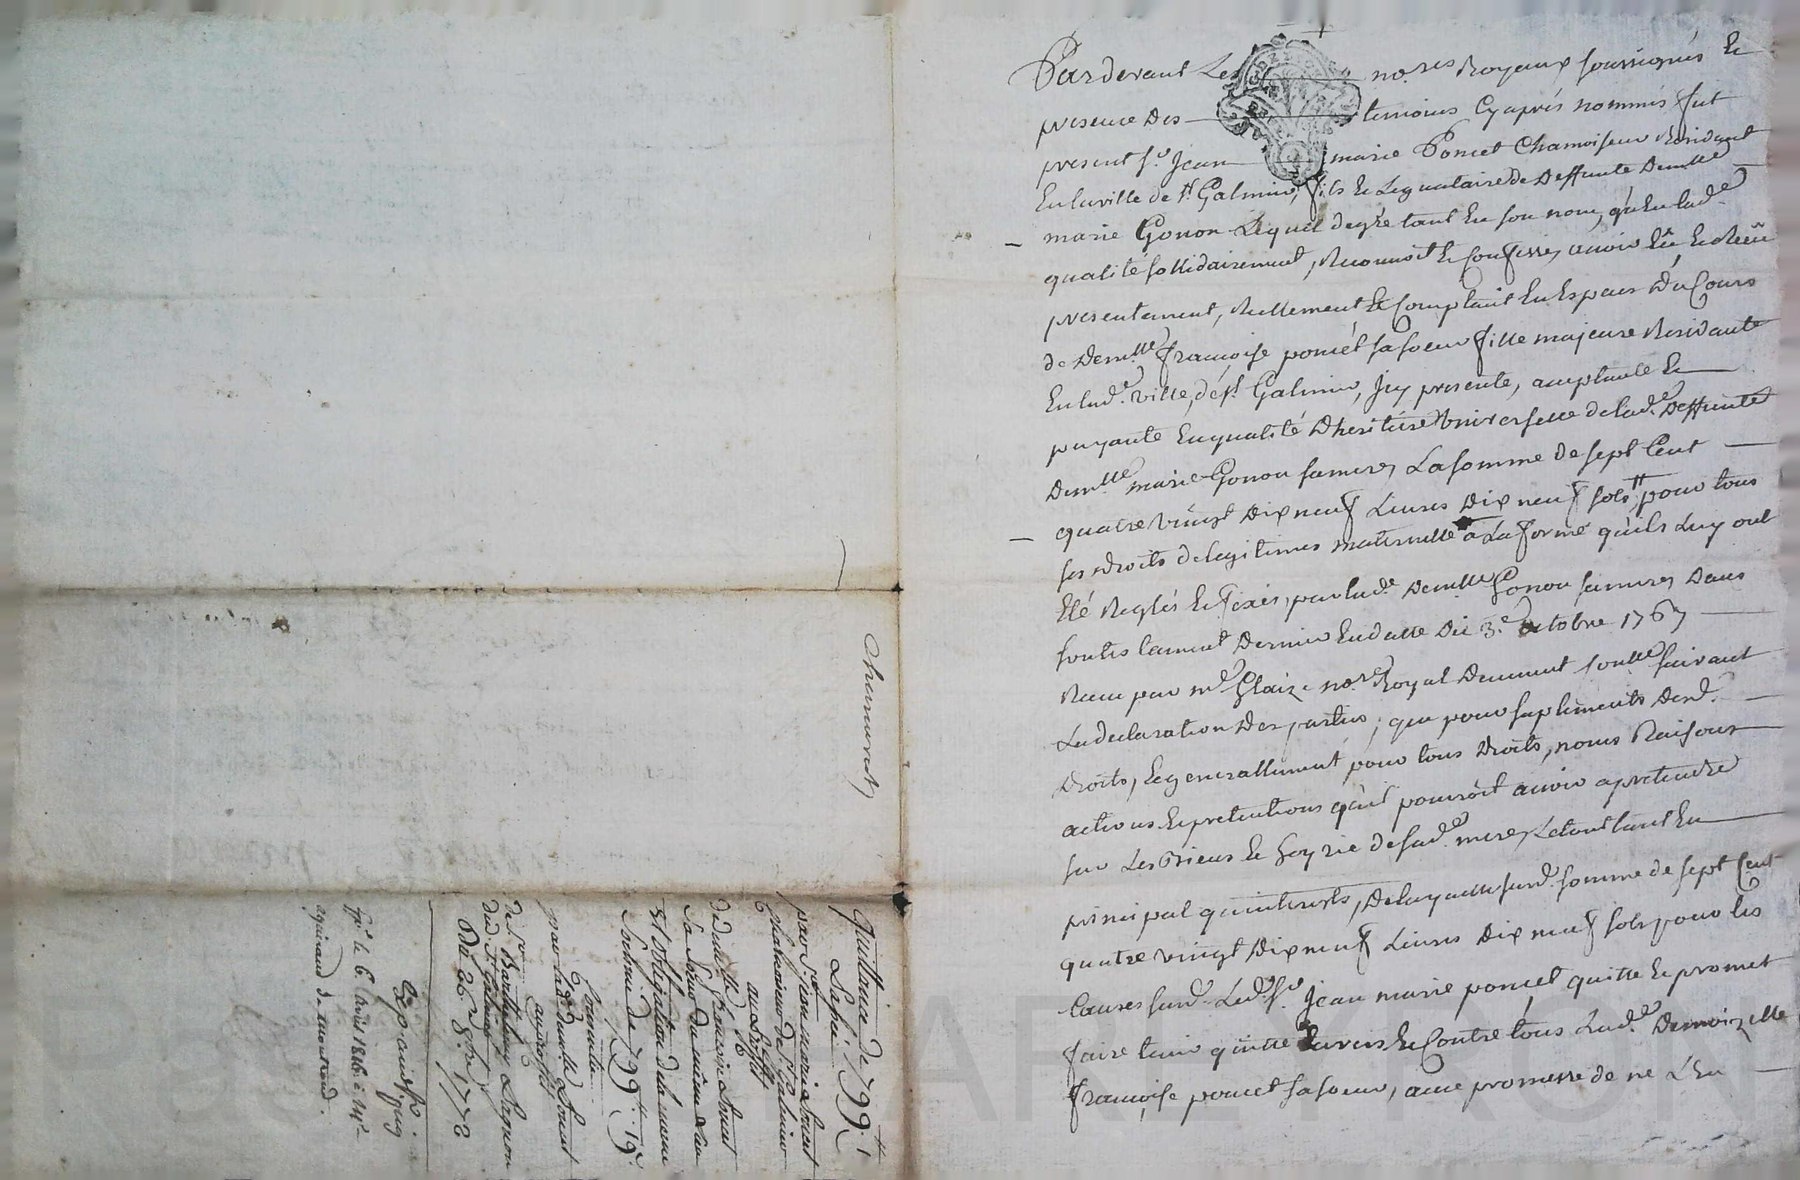 Pardevant Les no.res Royaux soussignés Et
presence Des temoins Cyaprés nommés fut
present s.r Jean marie Poncet Chamoiseur Résidant
En la ville de s.t Galmier, fils Et Legataire De Deffunte Dem.lle
marie Gonon Lequel de gré tant En son nom, qu'En lad.e
qualité sollidairement, Reconnoit Et Confesse, avoir Eû Et Reçû
presentement, Réellement Et Comptant En Especes Du Cours
de Dem.lle françoise poncet sa soeur fille majeure Residante
En lad.e ville, de s.t Galmier, Icy presente, acceptante Et
payante En qualité D'heritiere Universelle de lad.e Deffunte
Dem.lle marie Gonon sa mere, La somme de sept Cent
quatre Vingt Dix neuf Livres Dix neuf sols, pour tous
ses Droits de legitimes maternelle a La forme qu'ils Luy ont
Eté Reglés Et fixés, par lad.e Dem.lle Gonon sa mere, Dans
son testament Dernier En datte Du 3.e octobre 1767
Recu par m.e Glaize no.re Royal Deument suivant
La declaration Des parties, que pour suplements Desd.
Droits, Et generallement pour tous Droits, noms Raisons
actions Et pretentions qu'il pourroit avoir a pretendre
sur Les Biens Et hoyrie de sad.e mere, Le tout tant En
principal qu'interests, De laquelle susd.e somme de sept Cent
quatre vingt Dix neuf Livres Dix neuf sols pour les
Causes susd.es Led. s.r Jean marie poncet quitte Et promet
faire tenir quitte Envers Et Contre tous Lad.e Demoizelle
françoise poncet sa soeur, avec promesse de ne L'En
Quittance de 799.lt
Passée
par s.r Jean marie Poncet
Chamoiseur de s.t Galmier
au proffit
de dem.lle francoise Poncet
sa soeur du même lieu
Et obligation de la meme
somme de 799.lt 19.s
Consentie
par lad. dem.lle Poncet
au proffit
de s.r Barthelemy
dud. s.t Galmier
Du 26 8.bre 1772
Expedition